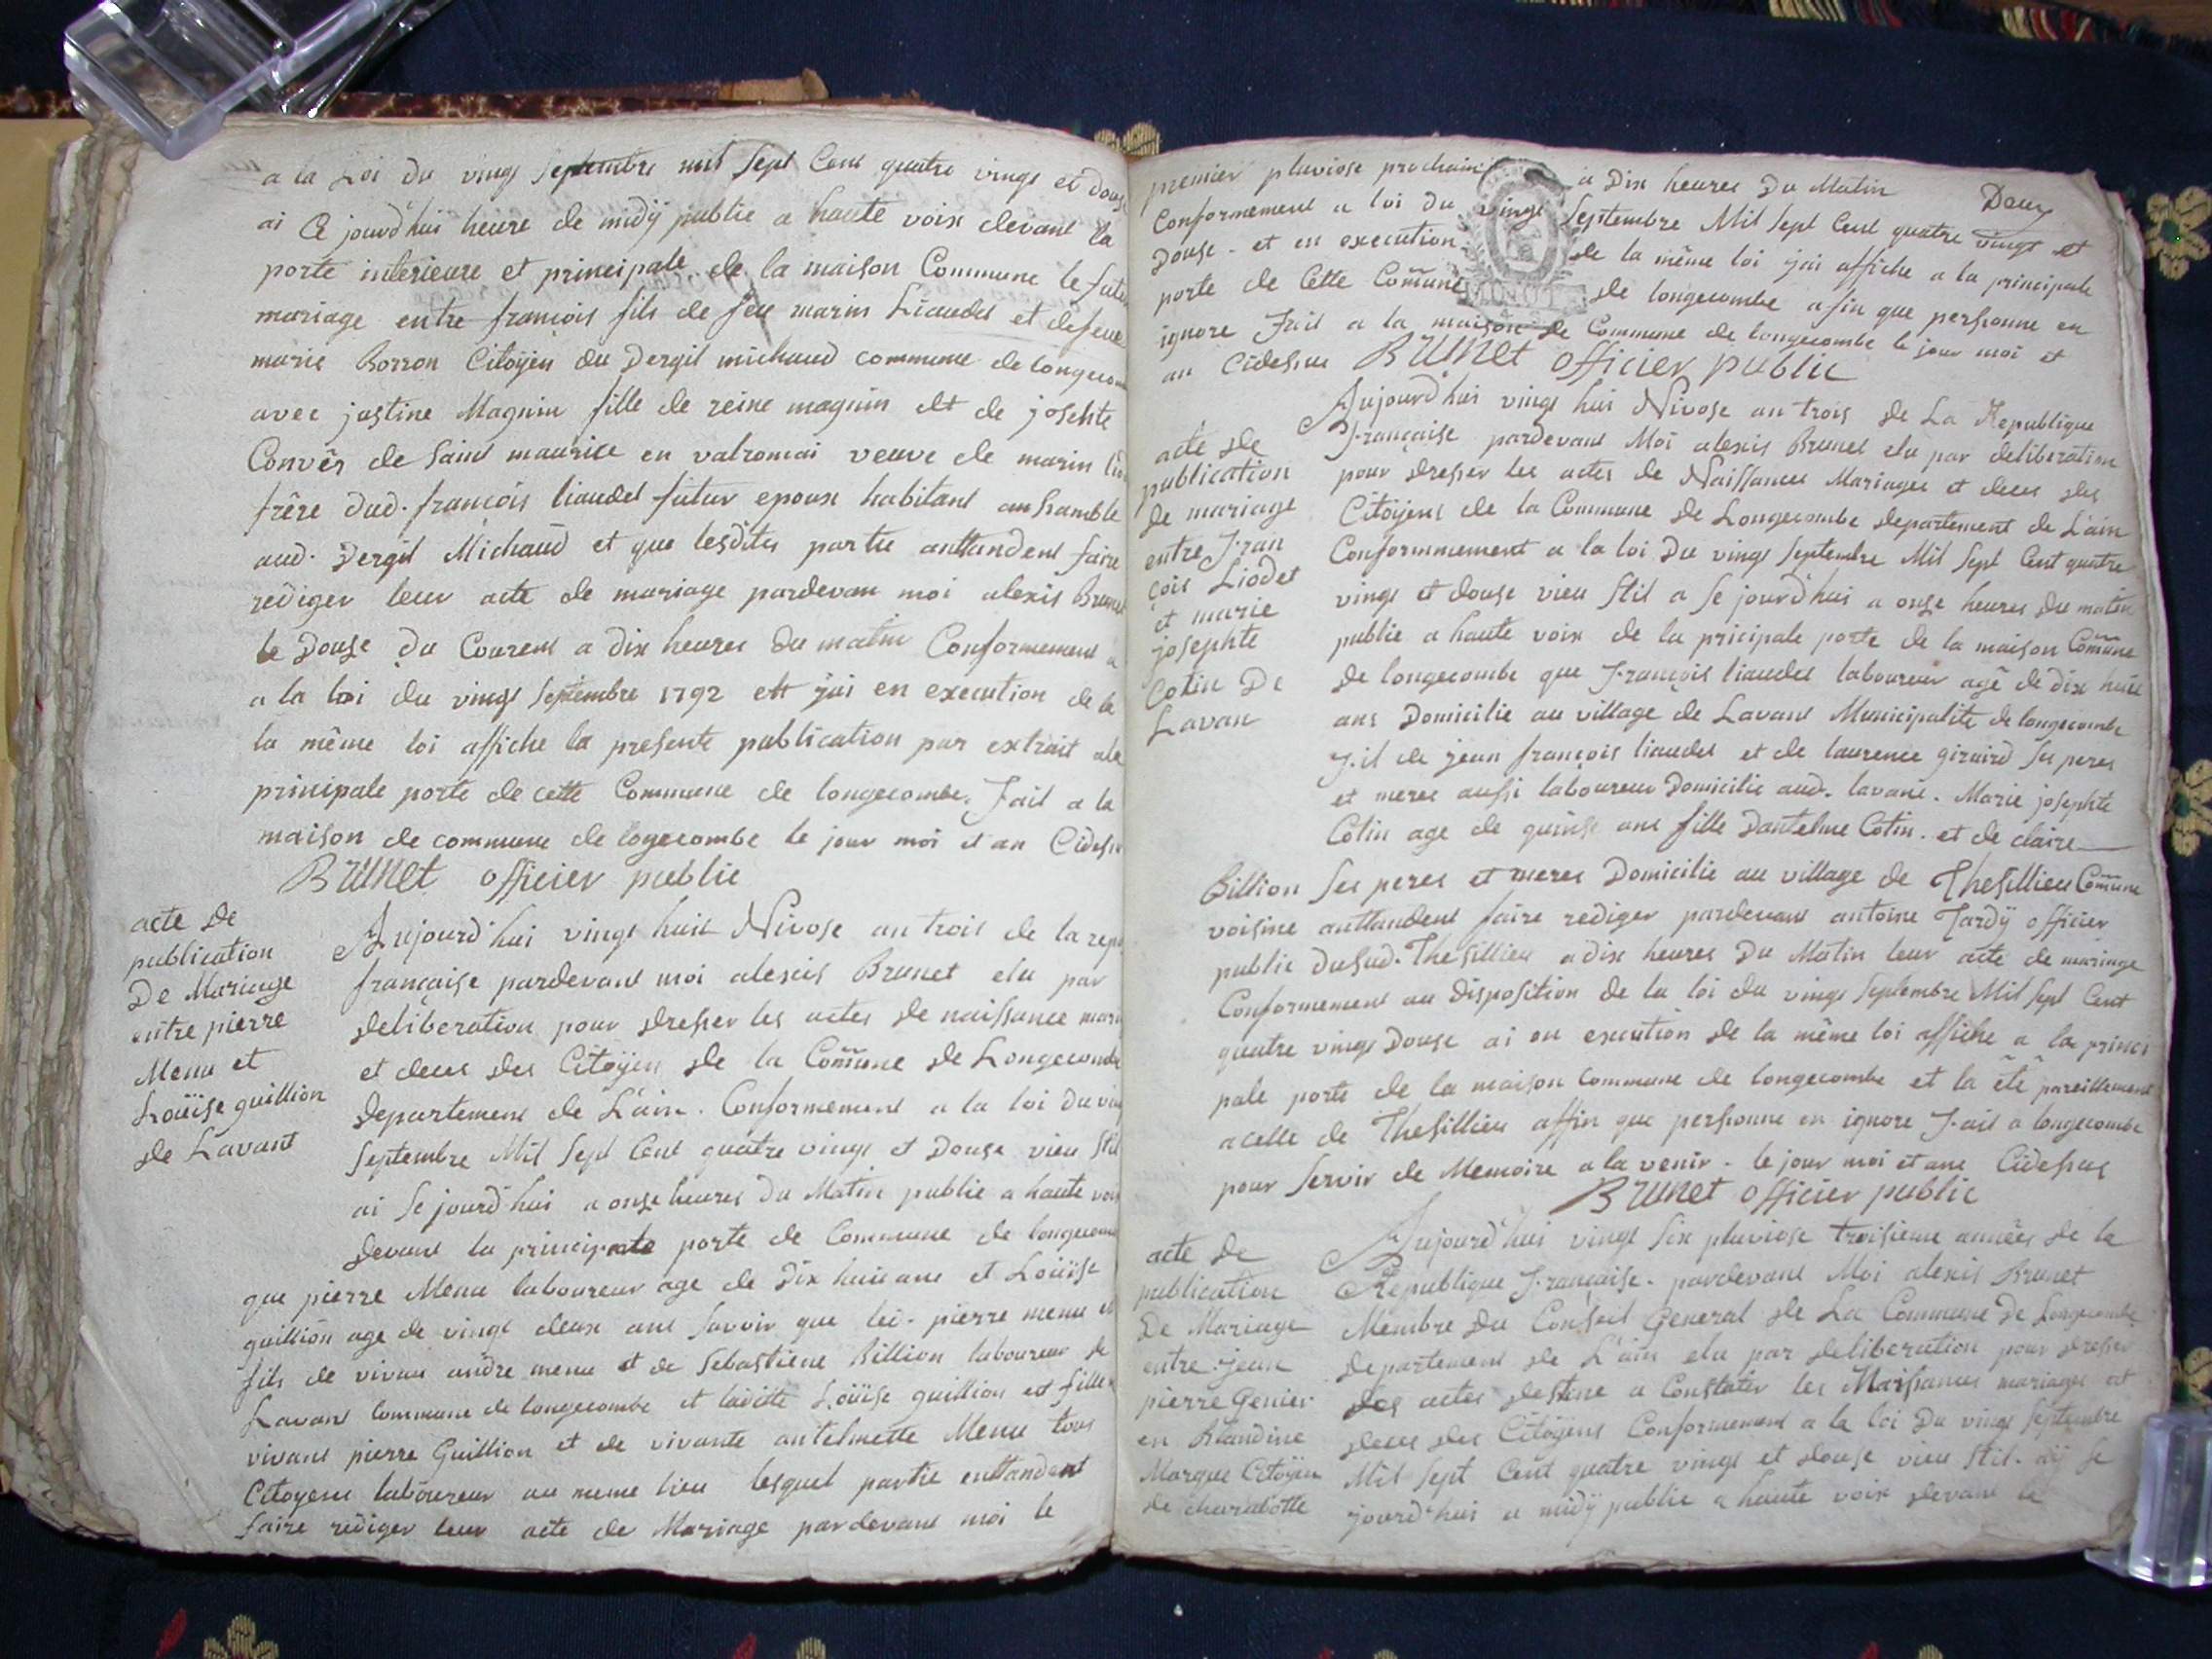 a la Loi du vingt septembre mil sept Cent quatre vingt et douse
ai Ce jourd'hui heure de midÿ publie a haute voix devant la
porte interieure et principale de la maison Commune le futu
mariage entre françois fils de feu marin Liaudet et defeue
marie Borron Citoÿen du Dergit michaud commune de longecom
avec justine Magnin fille de reine magnin et de josehte
Convers de Saint maurice en valromai veuve de marin lia
frêre dud. françois liaudet futur epoux habitant
aud. Dergit Michaud et que lesdites partie anttandent faire
rediger leur acte de mariage pardevan moi alexis Brunet
le Douse du Courent a dix heures du matin Conformement a
a la loi du vingt septembre 1792 ett jai en execution de la
la même loi affiche la presente publication par extrait ala
principale porte de cette Commune de longecombe. Fait a la
maison de commune de logecombe le jour moi et an Cidessu
BRUNet officier public
acte de
publication
De Mariage
entre pierre
Menu et
Loüise guillion
de Lavant
Aujourd'hui vingt huit Nivose an trois de la repu
française pardevant moi alexis Brunet elu par
deliberation pour dresser les actes de naissance mari
et deces des Citoÿen de la Comune de Longecombe
departement de L'ain. Conformement a la loi du vin
Septembre Mil Sept Cent quatre vingt et Douse vieu Stil
ai Se jourd'hui a onse heures du Matin publie a haute voix
devant la principale porte de Commune de longecom
que pierre Menu laboureur age de Dix huit ans et Loüise
guillion age de vingt deux ans Savoir que lei. pierre menu et
fils de vivan andre menu et de Sebastiene Billion laboureur de
Lavant Commune de longecombe et ladite Loüise guillion est fille
vivant pierre Guillion et de vivante antelmette Menu tous
Citoyens laboureur au meme lieu lesquel partie enttandent
faire rediger leur acte de Mariage pardevant moi le
premier pluviose prochain a Dix heures Du Matin Deux
Conformement a loi du vingt Septembre Mil Sept Cent quatre vingt et
Douse. et en execution de la même loi j'ai affiche a la principale
porte de Cette Comune de longecombe afin que personne en
ignore Fait a la maison de Commune de longecombe le jour moi et
an Cidessus BRUNet officier public
acte de
publication
de mariage
entre Fran
çois Liodet
et marie
josephte
Cotin De
Lavan
Aujourd'hui vingt huit Nivose an trois de La Republique
Française pardevant Moi alexis Brunet elu par deliberation
pour dresser les actes de Naissances Mariages et deces des
Citoÿens de la Commune de Longecombe departement de L'ain
Conformmement a la loi Du vingt Septembre Mil Sept Cent quatre
vingt et douse vieu Stil a Se jourd'hui a onse heures du matin
publie a haute voix de la pricipale porte de la maison Comune
de longecombe que François liaudet laboureur agé de dix huit
ans Domicilie au village de Lavant Municipalite de longecombe
Fil de jean françois liaudet et de laurence giraird Ses peres
et meres aussi laboureur Domicilie aud. lavant. Marie josephte
Cotin age de quinse ans fille Dantelme Cotin. et de claire
Billion Ses peres et meres Domicilie au village de Thesillieu Comune
voisine anttandent faire rediger pardevant antoine Tardÿ officier
public dusud. Thesillieu a dix heures Du Matin leur acte de mariage
Conformement au disposition de la loi du vingt Septembre Mil Sept Cent
quatre vingt Douse ai en execution de la même loi affiche a la princi
pale porte de la maison Commune de longecombe et la êtê pareillement
a celle de Thesillieu affin que personne en ignore Fait a longecombe
pour Servir de Memoire a la venir. le jour moi et ans Cidessus
BRUNet officier public
acte de
publication
De Mariage
entre jean
pierre Genier
en Blandine
Margue Citoÿen
de charabotte
Aujourd'hui vingt Six pluviose troisieme années de la
Republique Française. pardevant Moi alexis Brunet
Membre Du Conseil General de La Commune De Longecombe
departement de L'ain elu par deliberation pour dresser
des actes destine a Constater les Naissances mariages et
deces des Citoÿens Conformement a la loi Du vingt Septembre
Mil Sept Cent quatre vingt et douse vieu Stil. aÿ Se
jourd'hui a midÿ publie a haute voix devant la